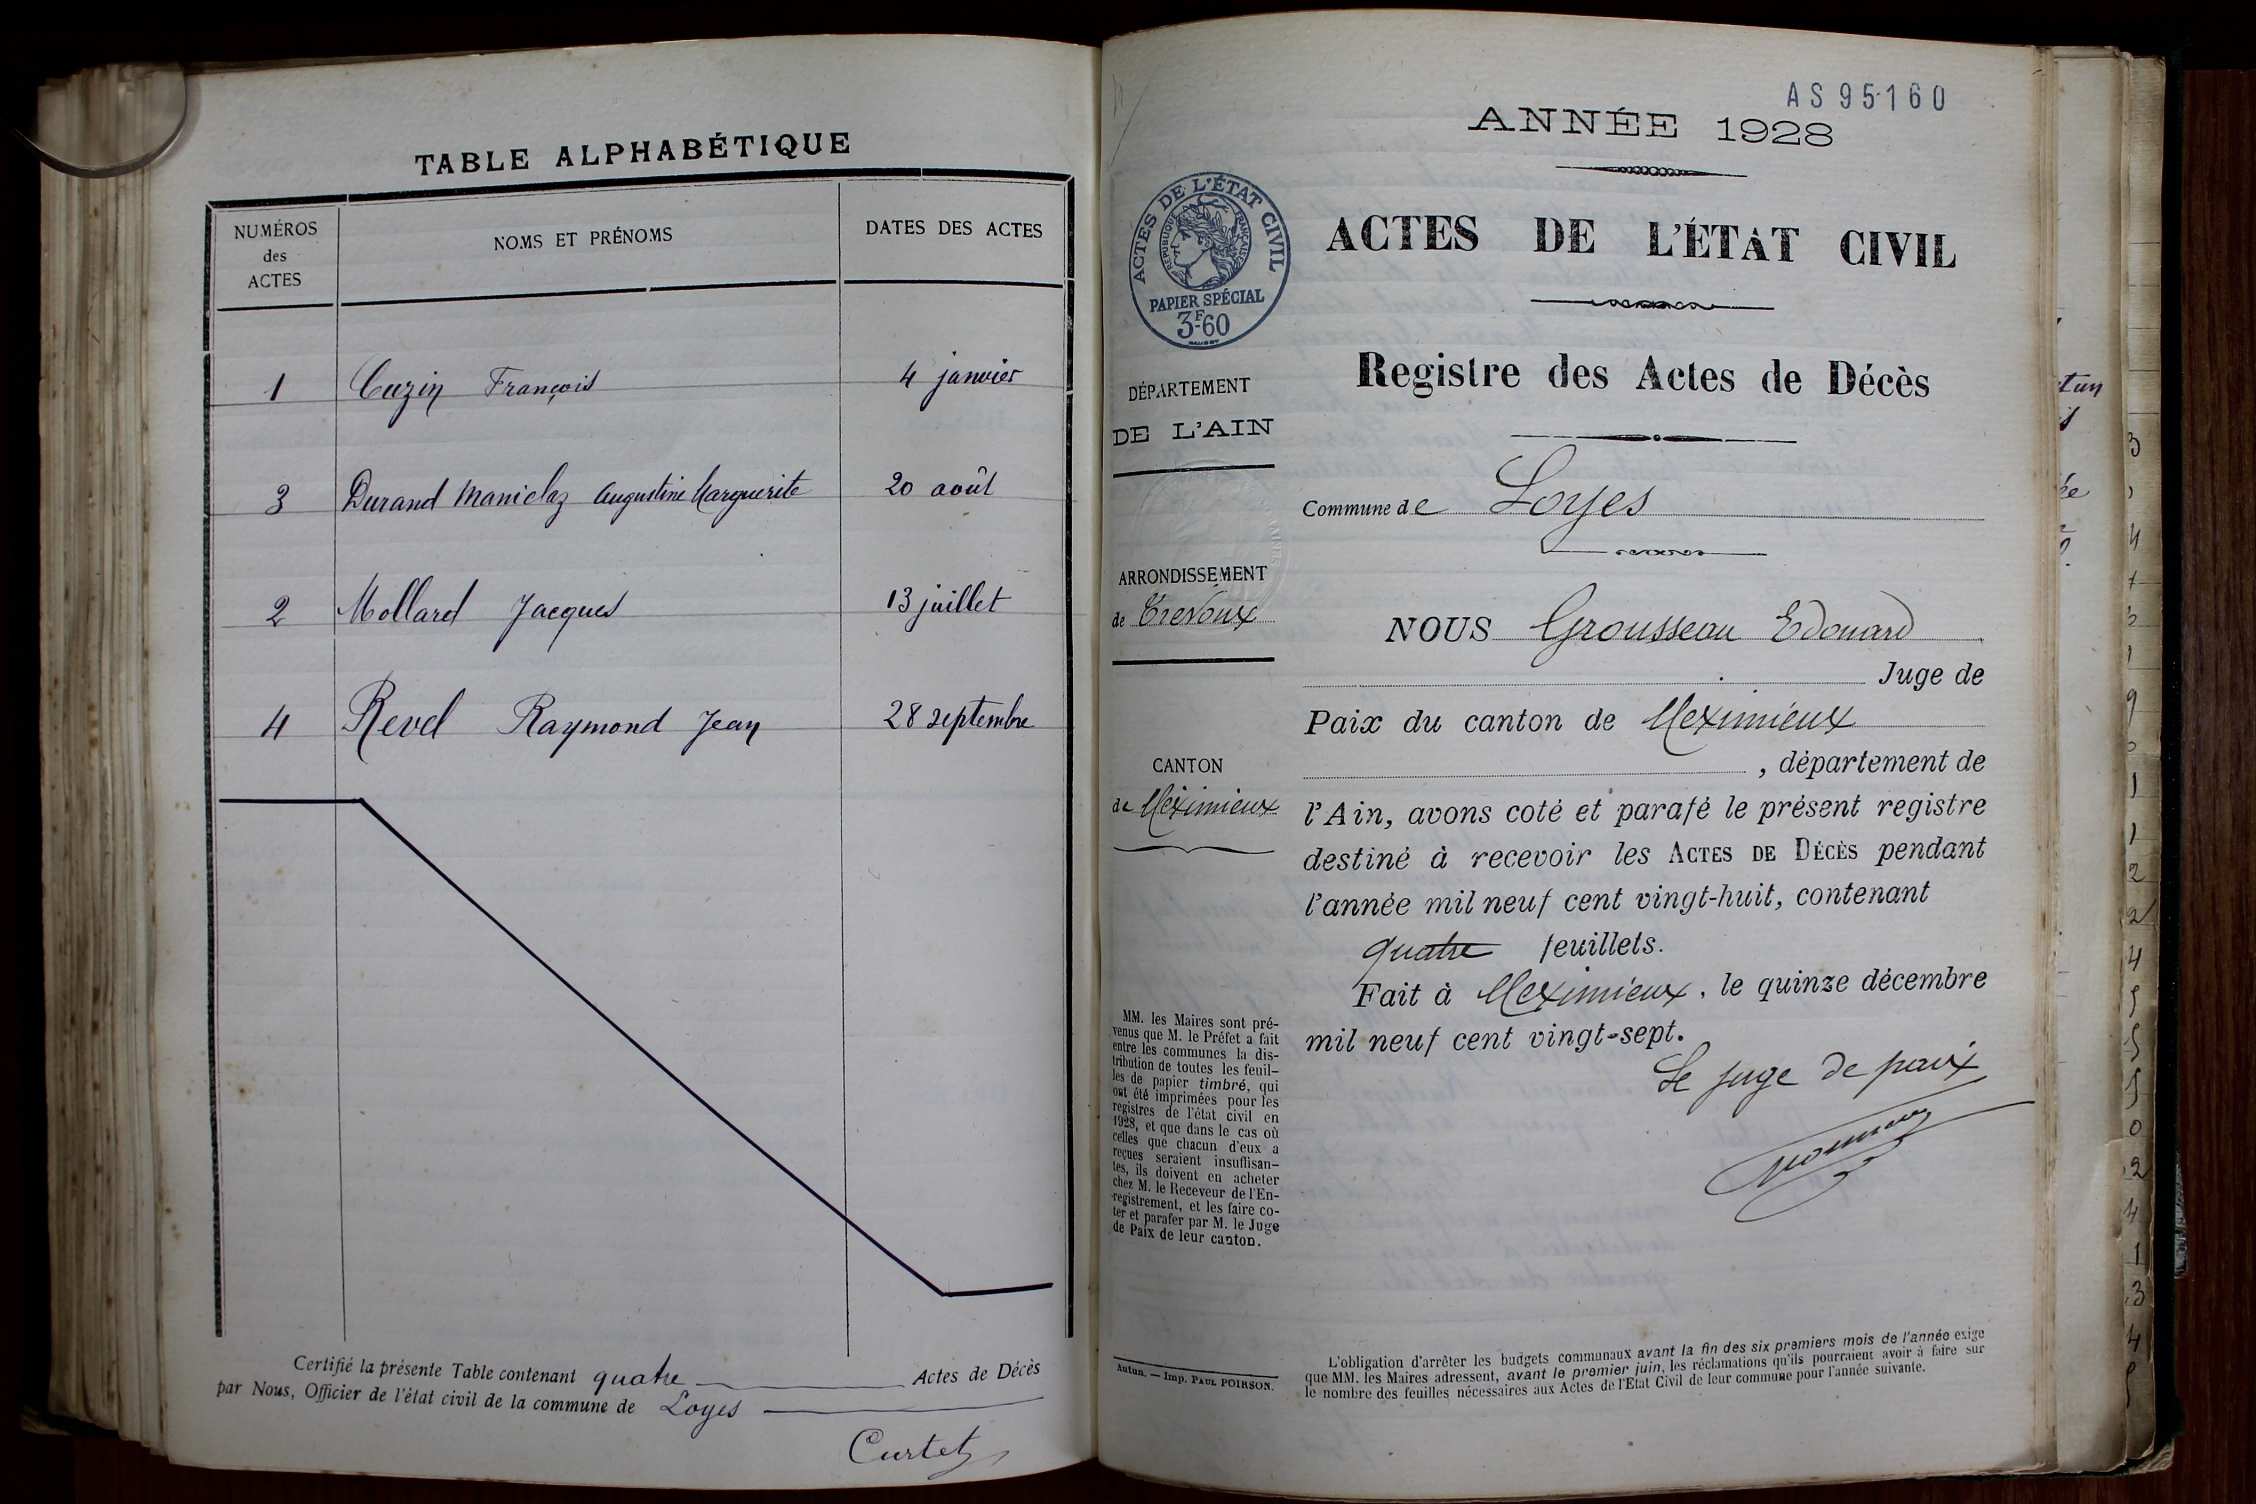 TABLE ALPHABÉTIQUE
NUMÉROS des ACTES
NOMS ET PRÉNOMS
DATES DES ACTES
1 Cuzin François 4 janvier
3 Durand Maniclaz Augustine Marguerite 20 août
2 Mollard Jacques 13 juillet
4 Revel Raymond Jean 28 septembre
Certifié la présente Table contenant quatre Actes de Décès
par Nous, Officier de l'état civil de la commune de Loyes
Curtet
AS 95160
ANNÉE 1928
ACTES DE L'ÉTAT CIVIL
RÉPUBLIQUE FRANÇAISE
PAPIER SPÉCIAL
3F-60
ACTES DE L'ÉTAT CIVIL
Registre des Actes de Décès
DÉPARTEMENT
DE L'AIN
Commune de Loyes
ARRONDISSEMENT
de Trévoux
NOUS Grousseau Edouard
Juge de
Paix du canton de Meximieux
, département de
CANTON
de Meximieux
l'Ain, avons coté et parafé le présent registre
destiné à recevoir les ACTES DE DÉCÈS pendant
l'année mil neuf cent vingt-huit, contenant
quatre feuillets.
Fait à Meximieux, le quinze décembre
mil neuf cent vingt-sept.
Le juge de paix
MM. les Maires sont pré-
venus que M. le Préfet a fait
entre les communes la dis-
tribution de toutes les feuil-
les de papier timbré, qui
ont été imprimées pour les
registres de l'état civil en
1928, et que dans le cas où
celles que chacun d'eux a
reçues seraient insuffisan-
tes, ils doivent en acheter
chez M. le Receveur de l'En-
registrement, et les faire co-
ter et parafer par M. le Juge
de Paix de leur canton.
Autun. — Imp. PAUL POIRSON.
L'obligation d'arrêter les budgets communaux avant la fin des six premiers mois de l'année exige
que MM. les Maires adressent, avant le premier juin, les réclamations qu'ils pourraient avoir à faire sur
le nombre des feuilles nécessaires aux Actes de l'Etat Civil de leur commune pour l'année suivante.